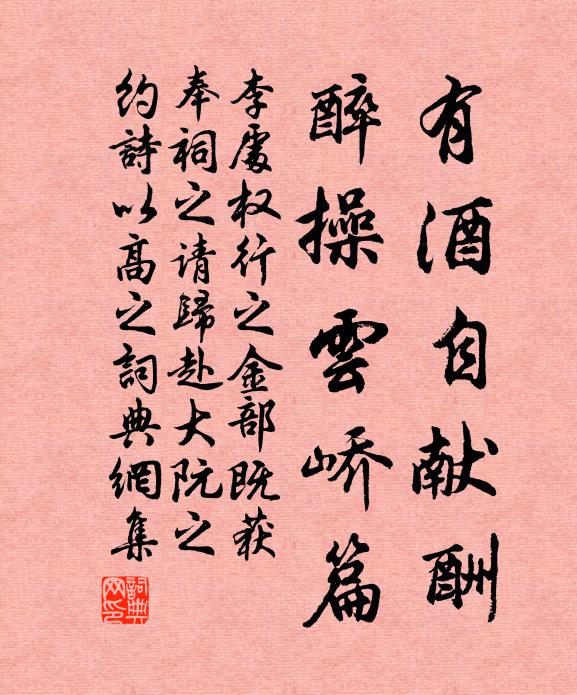 有酒自献酬
醉操雲嶠篇
李處权行之金部既获
奉祠之请歸赴大阮之
约詩以高之詞典網集
詞典网印